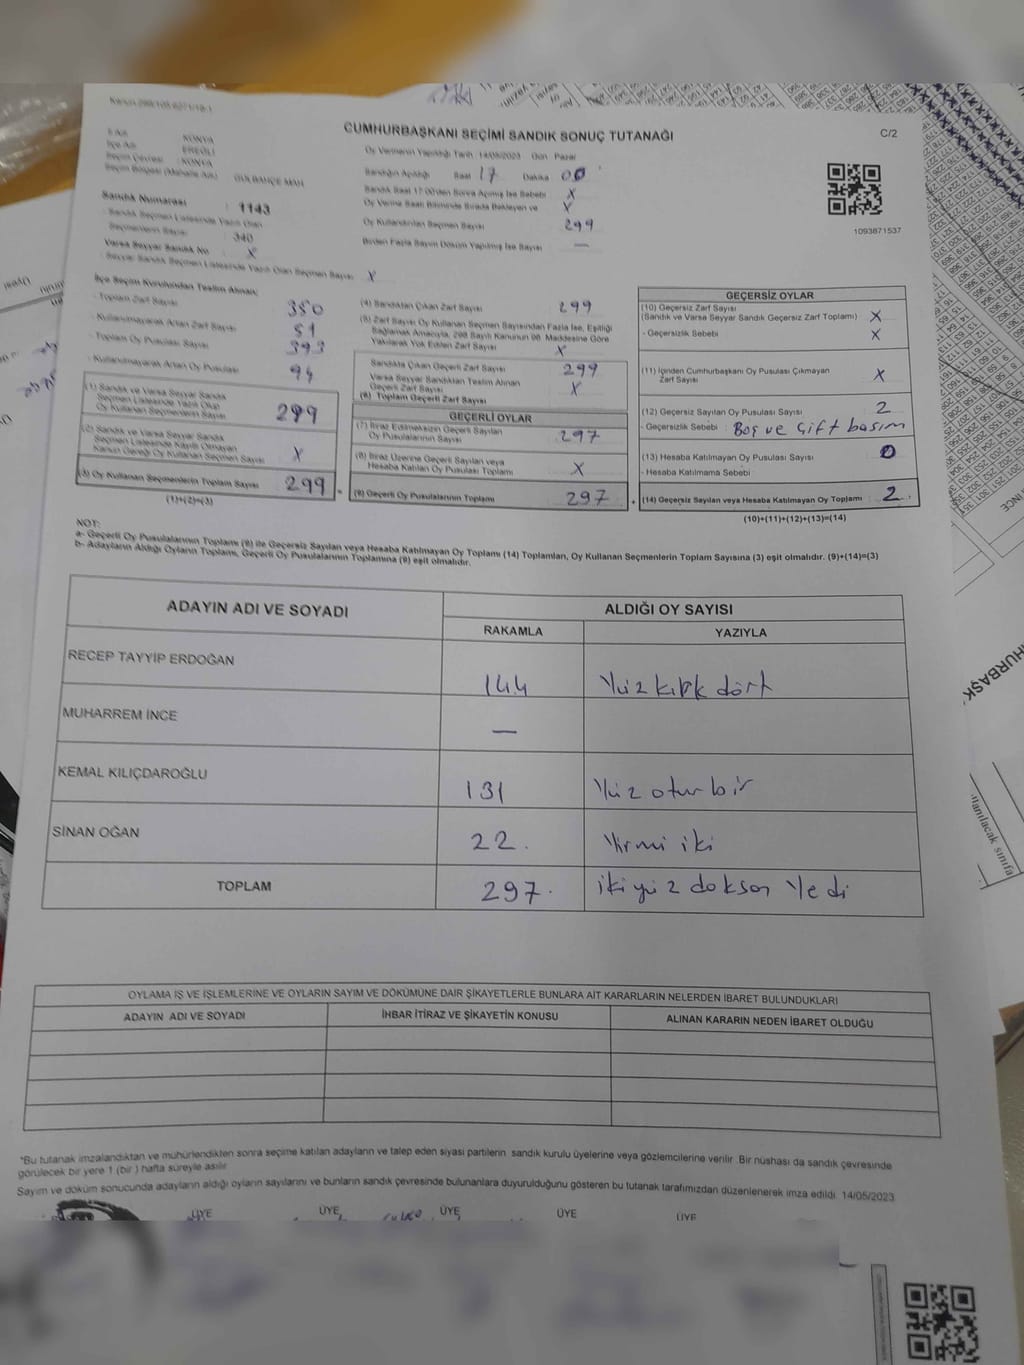 CUMHURBAŞKANI SEÇİMİ SANDIK SONUÇ TUTANAĞI
C/2
İl Adı : KONYA
İlçe Adı : EREĞLİ
Seçim Çevresi : KONYA
Seçim Bölgesi (Mahalle Adı) : GÜLBAHÇE MAH.
Sandık Numarası : 1143
Sandık Seçmen Listesinde Yazılı Olan
Seçmenlerin Sayısı : 340
Varsa Seyyar Sandık No : X
Seyyar Sandık Seçmen Listesinde Yazılı Olan Seçmen Sayısı : X
Oy Vermenin Yapıldığı Tarih 14/05/2023 Gün Pazar
Sandığın Açıldığı Saat 17 Dakika 00
Sandık Saat 17:00'den Sonra Açılmış İse Sebebi X
Oy Verme Saati Bitiminde Sırada Bekleyen ve X
Oy Kullandırılan Seçmen Sayısı 299
Birden Fazla Sayım Döküm Yapılmış İse Sayısı —
1093871537
İlçe Seçim Kurulundan Teslim Alınan;
- Toplam Zarf Sayısı : 350
- Kullanılmayarak Artan Zarf Sayısı : 51
- Toplam Oy Pusulası Sayısı : 393
- Kullanılmayarak Artan Oy Pusulası : 94
(1) Sandık ve Varsa Seyyar Sandık
Seçmen Listesinde Yazılı Olup
Oy Kullanan Seçmenlerin Sayısı : 299
(2) Sandık ve Varsa Seyyar Sandık
Seçmen Listesinde Kayıtlı Olmayan
Kanun Gereği Oy Kullanan Seçmen Sayısı : X
(3) Oy Kullanan Seçmenlerin Toplam Sayısı : 299
(1)+(2)=(3)
(4) Sandıktan Çıkan Zarf Sayısı : 299
(5) Zarf Sayısı Oy Kullanan Seçmen Sayısından Fazla İse, Eşitliği
Sağlamak Amacıyla, 298 Sayılı Kanunun 98. Maddesine Göre
Yakılarak Yok Edilen Zarf Sayısı : X
Sandıkta Çıkan Geçerli Zarf Sayısı : 299
Varsa Seyyar Sandıktan Teslim Alınan
Geçerli Zarf Sayısı : X
(6) Toplam Geçerli Zarf Sayısı
GEÇERLİ OYLAR
(7) İtiraz Edilmeksizin Geçerli Sayılan
Oy Pusulalarının Sayısı : 297
(8) İtiraz Üzerine Geçerli Sayılan veya
Hesaba Katılan Oy Pusulası Toplamı : X
(9) Geçerli Oy Pusulalarının Toplamı : 297
GEÇERSİZ OYLAR
(10) Geçersiz Zarf Sayısı
(Sandık ve Varsa Seyyar Sandık Geçersiz Zarf Toplamı) : X
- Geçersizlik Sebebi : X
(11) İçinden Cumhurbaşkanı Oy Pusulası Çıkmayan
Zarf Sayısı : X
(12) Geçersiz Sayılan Oy Pusulası Sayısı : 2
- Geçersizlik Sebebi : Boş ve çift basım
(13) Hesaba Katılmayan Oy Pusulası Sayısı : 0
- Hesaba Katılmama Sebebi
(14) Geçersiz Sayılan veya Hesaba Katılmayan Oy Toplamı : 2
(10)+(11)+(12)+(13)=(14)
NOT:
a- Geçerli Oy Pusulalarının Toplamı (9) ile Geçersiz Sayılan veya Hesaba Katılmayan Oy Toplamı (14) Toplamları, Oy Kullanan Seçmenlerin Toplam Sayısına (3) eşit olmalıdır. (9)+(14)=(3)
b- Adayların Aldığı Oyların Toplamı, Geçerli Oy Pusulalarının Toplamına (9) eşit olmalıdır.
ADAYIN ADI VE SOYADI
ALDIĞI OY SAYISI
RAKAMLA YAZIYLA
RECEP TAYYİP ERDOĞAN 144 Yüz kırk dört
MUHARREM İNCE —
KEMAL KILIÇDAROĞLU 131 Yüz otuz bir
SİNAN OĞAN 22. Yirmi iki
TOPLAM 297. iki yüz doksan Yedi
OYLAMA İŞ VE İŞLEMLERİNE VE OYLARIN SAYIM VE DÖKÜMÜNE DAİR ŞİKAYETLERLE BUNLARA AİT KARARLARIN NELERDEN İBARET BULUNDUKLARI
ADAYIN ADI VE SOYADI İHBAR İTİRAZ VE ŞİKAYETİN KONUSU ALINAN KARARIN NEDEN İBARET OLDUĞU
*Bu tutanak imzalandıktan ve mühürlendikten sonra seçime katılan adayların ve talep eden siyasi partilerin sandık kurulu üyelerine veya gözlemcilerine verilir .Bir nüshası da sandık çevresinde
görülecek bir yere 1 (bir ) hafta süreyle asılır
Sayım ve döküm sonucunda adayların aldığı oyların sayılarını ve bunların sandık çevresinde bulunanlara duyurulduğunu gösteren bu tutanak tarafımızdan düzenlenerek imza edildi. 14/05/2023
ÜYE ÜYE ÜYE ÜYE ÜYE